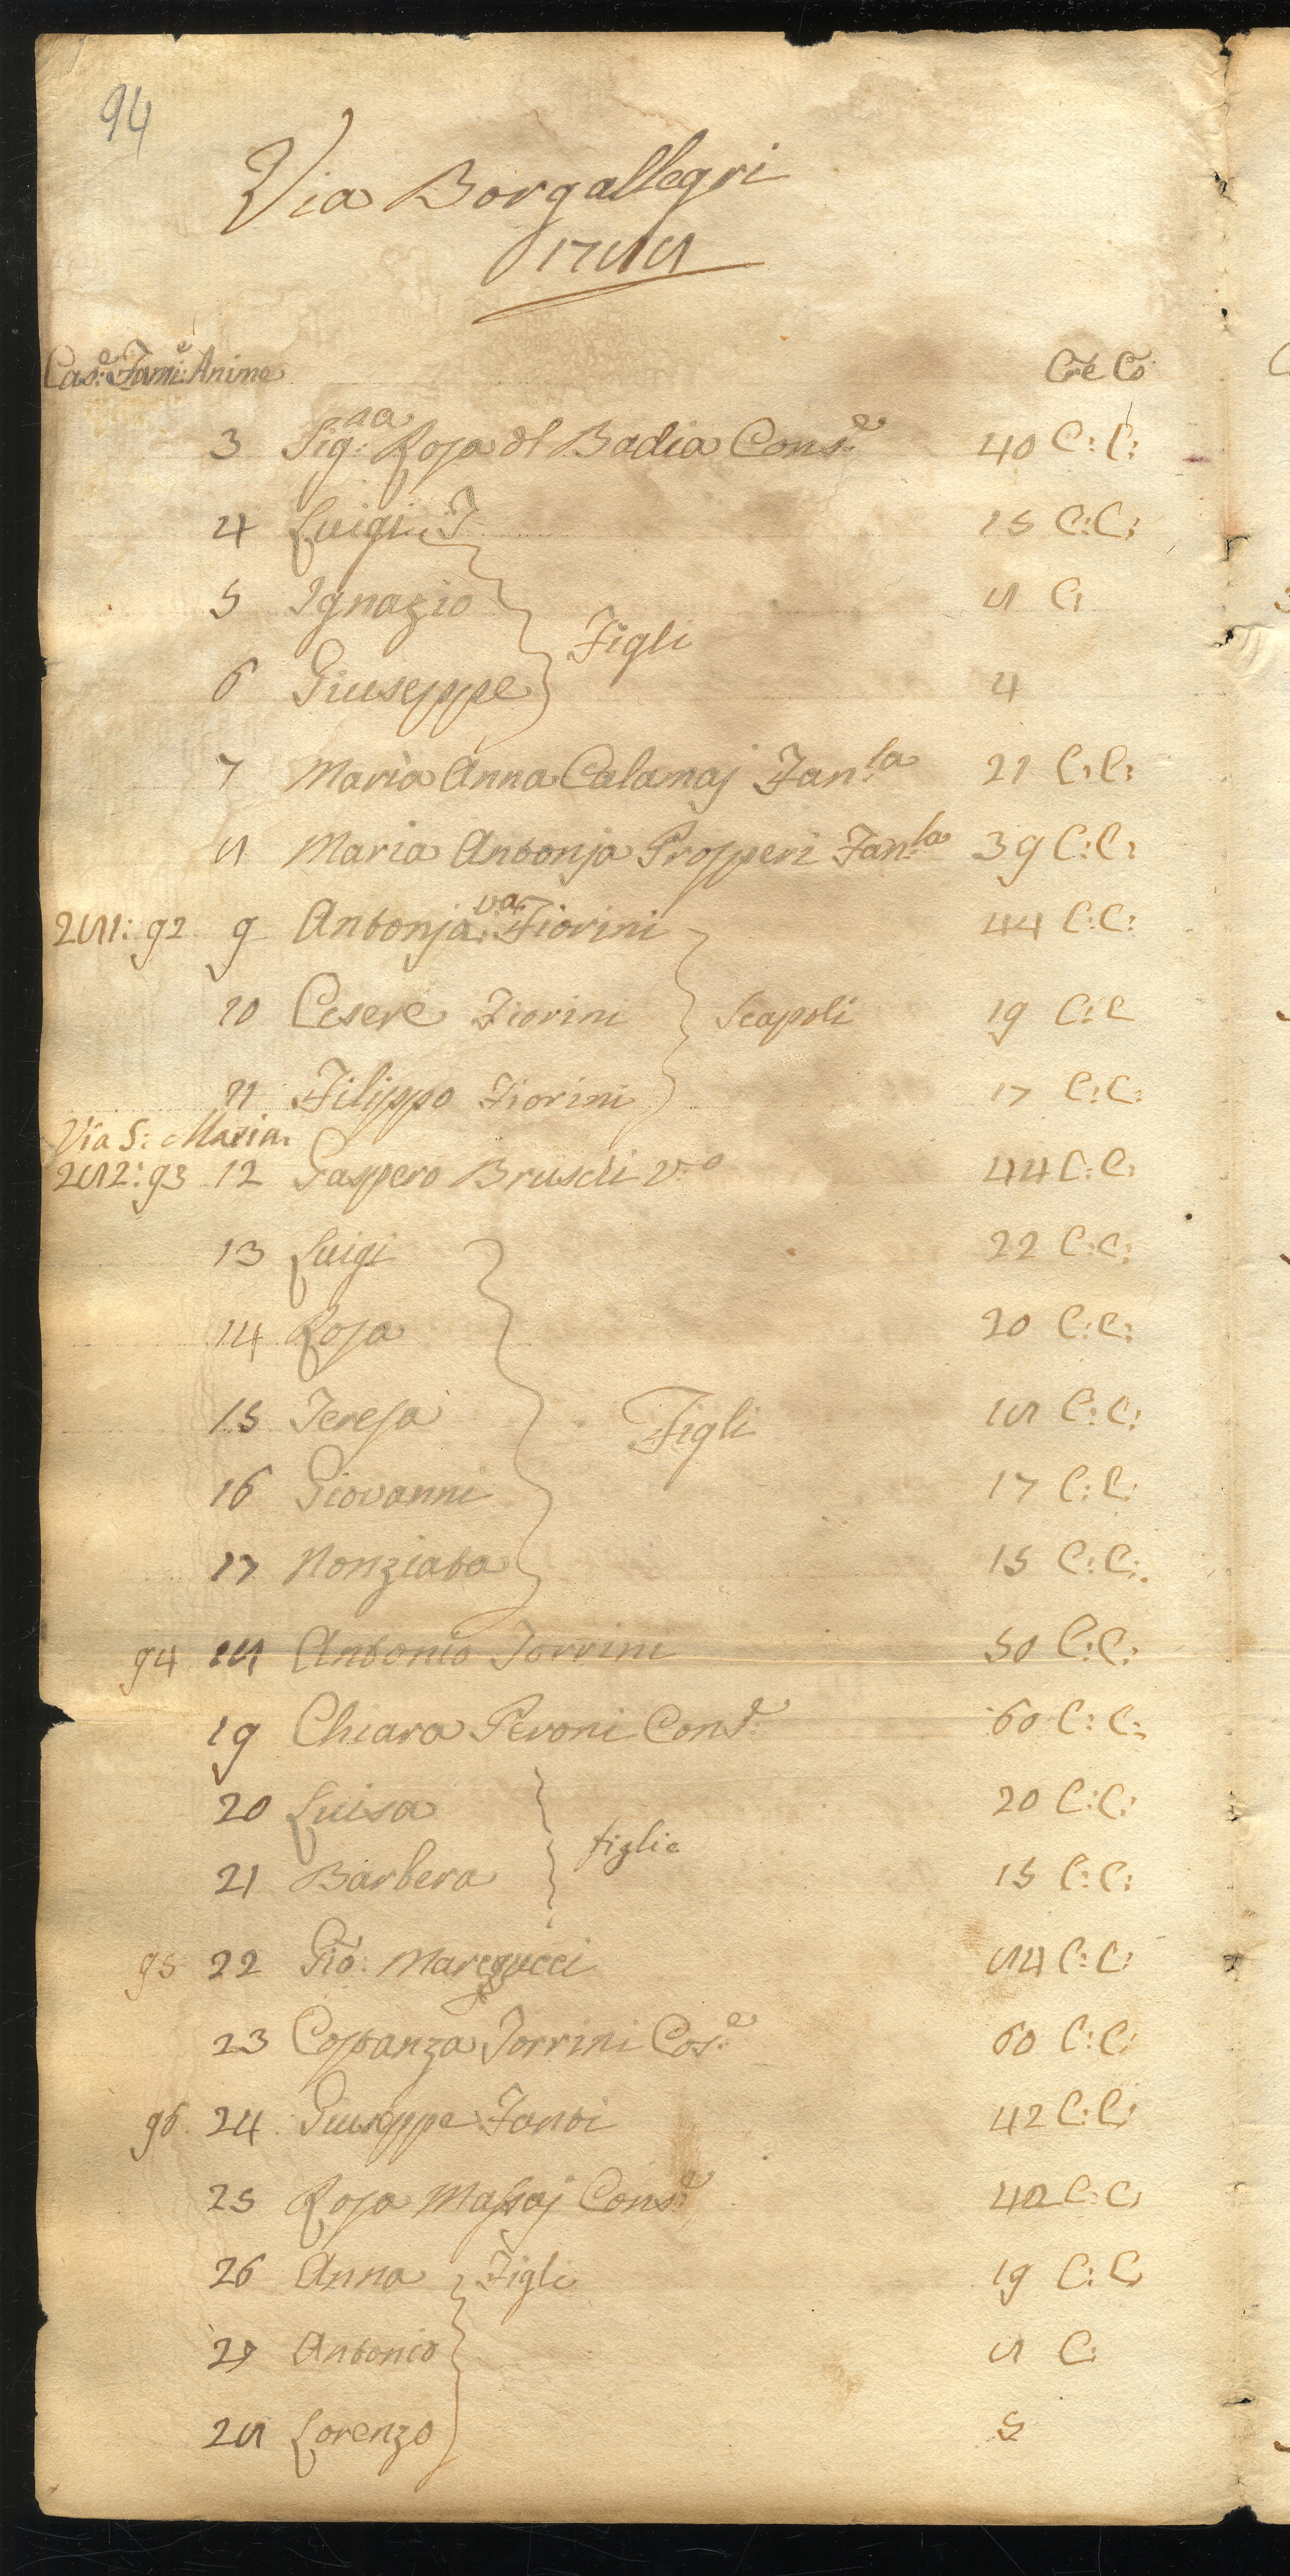 94
Via Borgallegri
1788
Cas:e Fami:e Anime Cre Co
3 Sig:ra Rosa dl Badia Cons:e 40 C: C:
4 Luigi 15 C: C:
5 Ignazio 8 C:
Figli
6 Giuseppe 4
7 Maria Anna Calamaj Fan:la 21 C: C:
8 Maria Antonja Prosperi Fan:la 39 C: C:
281: 92 9 Antonja va: Fiorini 44 C: C:
10 Cesere Fiorini Scapoli 19 C: C
11 Filippo Fiorini 17 C: C:
Via S: Maria
282: 93 12 Gaspero Bruschi v:o 44 C: C:
13 Luigi 22 C: C:
14 Rosa 20 C: C:
15 Teresa Figli 18 C: C:
16 Giovanni 17 C: C:
17 Nonziata 15 C: C:
94 18 Antonio Torrini 50 C: C:
19 Chiara Peroni Cons:e 60 C: C:
20 Luisa 20 C: C:
figlie
21 Barbera 15 C: C:
95 22 Gio: 84 C: C:
23 Costanza Torrini Cos:e 60 C: C:
96 24 Giuseppe Fanti 42 C: C:
25 Rosa Massaj Cons:e 42 C: C:
26 Anna Figli 19 C: C:
27 Antonio 8 C:
28 Lorenzo 5